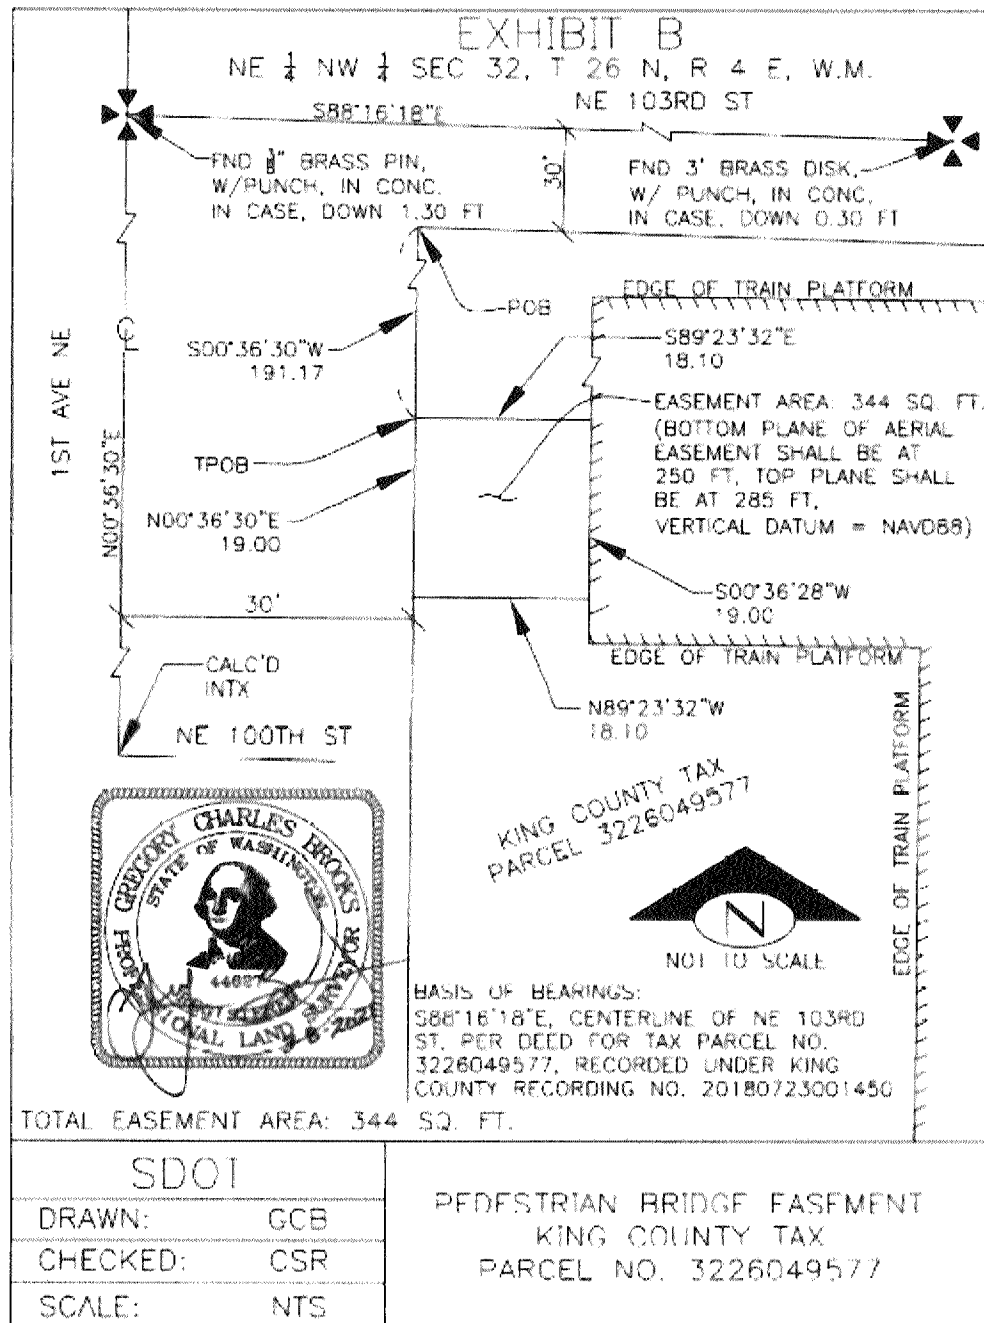 EXHIBIT B
NE 1/4 NW 1/4 SEC 32, T 26 N, R 4 E, W.M.
NE 103RD ST
S88°16'18"E
FND " BRASS PIN,
W/PUNCH, IN CONC.
IN CASE, DOWN 1.30 FT
30'
FND 3' BRASS DISK,
W/ PUNCH, IN CONC.
IN CASE, DOWN 0.30 FT
POB
EDGE OF TRAIN PLATFORM
1ST AVE NE
N00°36'30"E
S00°36'30"W
191.17
S89°23'32"E
18.10
TPOB
EASEMENT AREA: 344 SQ. FT.
(BOTTOM PLANE OF AERIAL
EASEMENT SHALL BE AT
250 FT, TOP PLANE SHALL
BE AT 285 FT,
VERTICAL DATUM = NAVD88)
N00°36'30"E
19.00
S00°36'28"W
19.00
30'
EDGE OF TRAIN PLATFORM
CALC'D
INTX
N89°23'32"W
18.10
NE 100TH ST
EDGE OF TRAIN PLATFORM
KING COUNTY TAX
PARCEL 3226049577
GREGORY CHARLES BROOKS
STATE OF WASHINGTON
PROFESSIONAL LAND SURVEYOR
N
NOT TO SCALE
BASIS OF BEARINGS:
S88°16'18"E, CENTERLINE OF NE 103RD
ST, PER DEED FOR TAX PARCEL NO.
3226049577, RECORDED UNDER KING
COUNTY RECORDING NO. 20180723001450
TOTAL EASEMENT AREA: 344 SQ. FT.
SDOT
DRAWN: GCB
CHECKED: CSR
SCALE: NTS
PEDESTRIAN BRIDGE EASEMENT
KING COUNTY TAX
PARCEL NO. 3226049577